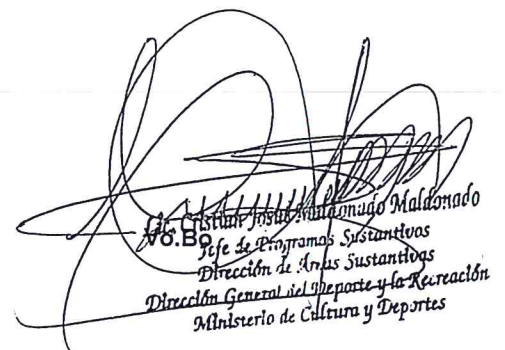 Lic. Cristian Josué Maldonado Maldonado
Vo.Bo
Jefe de Programas Sustantivos
Dirección de Áreas Sustantivas
Dirección General del Deporte y la Recreación
Ministerio de Cultura y Deportes